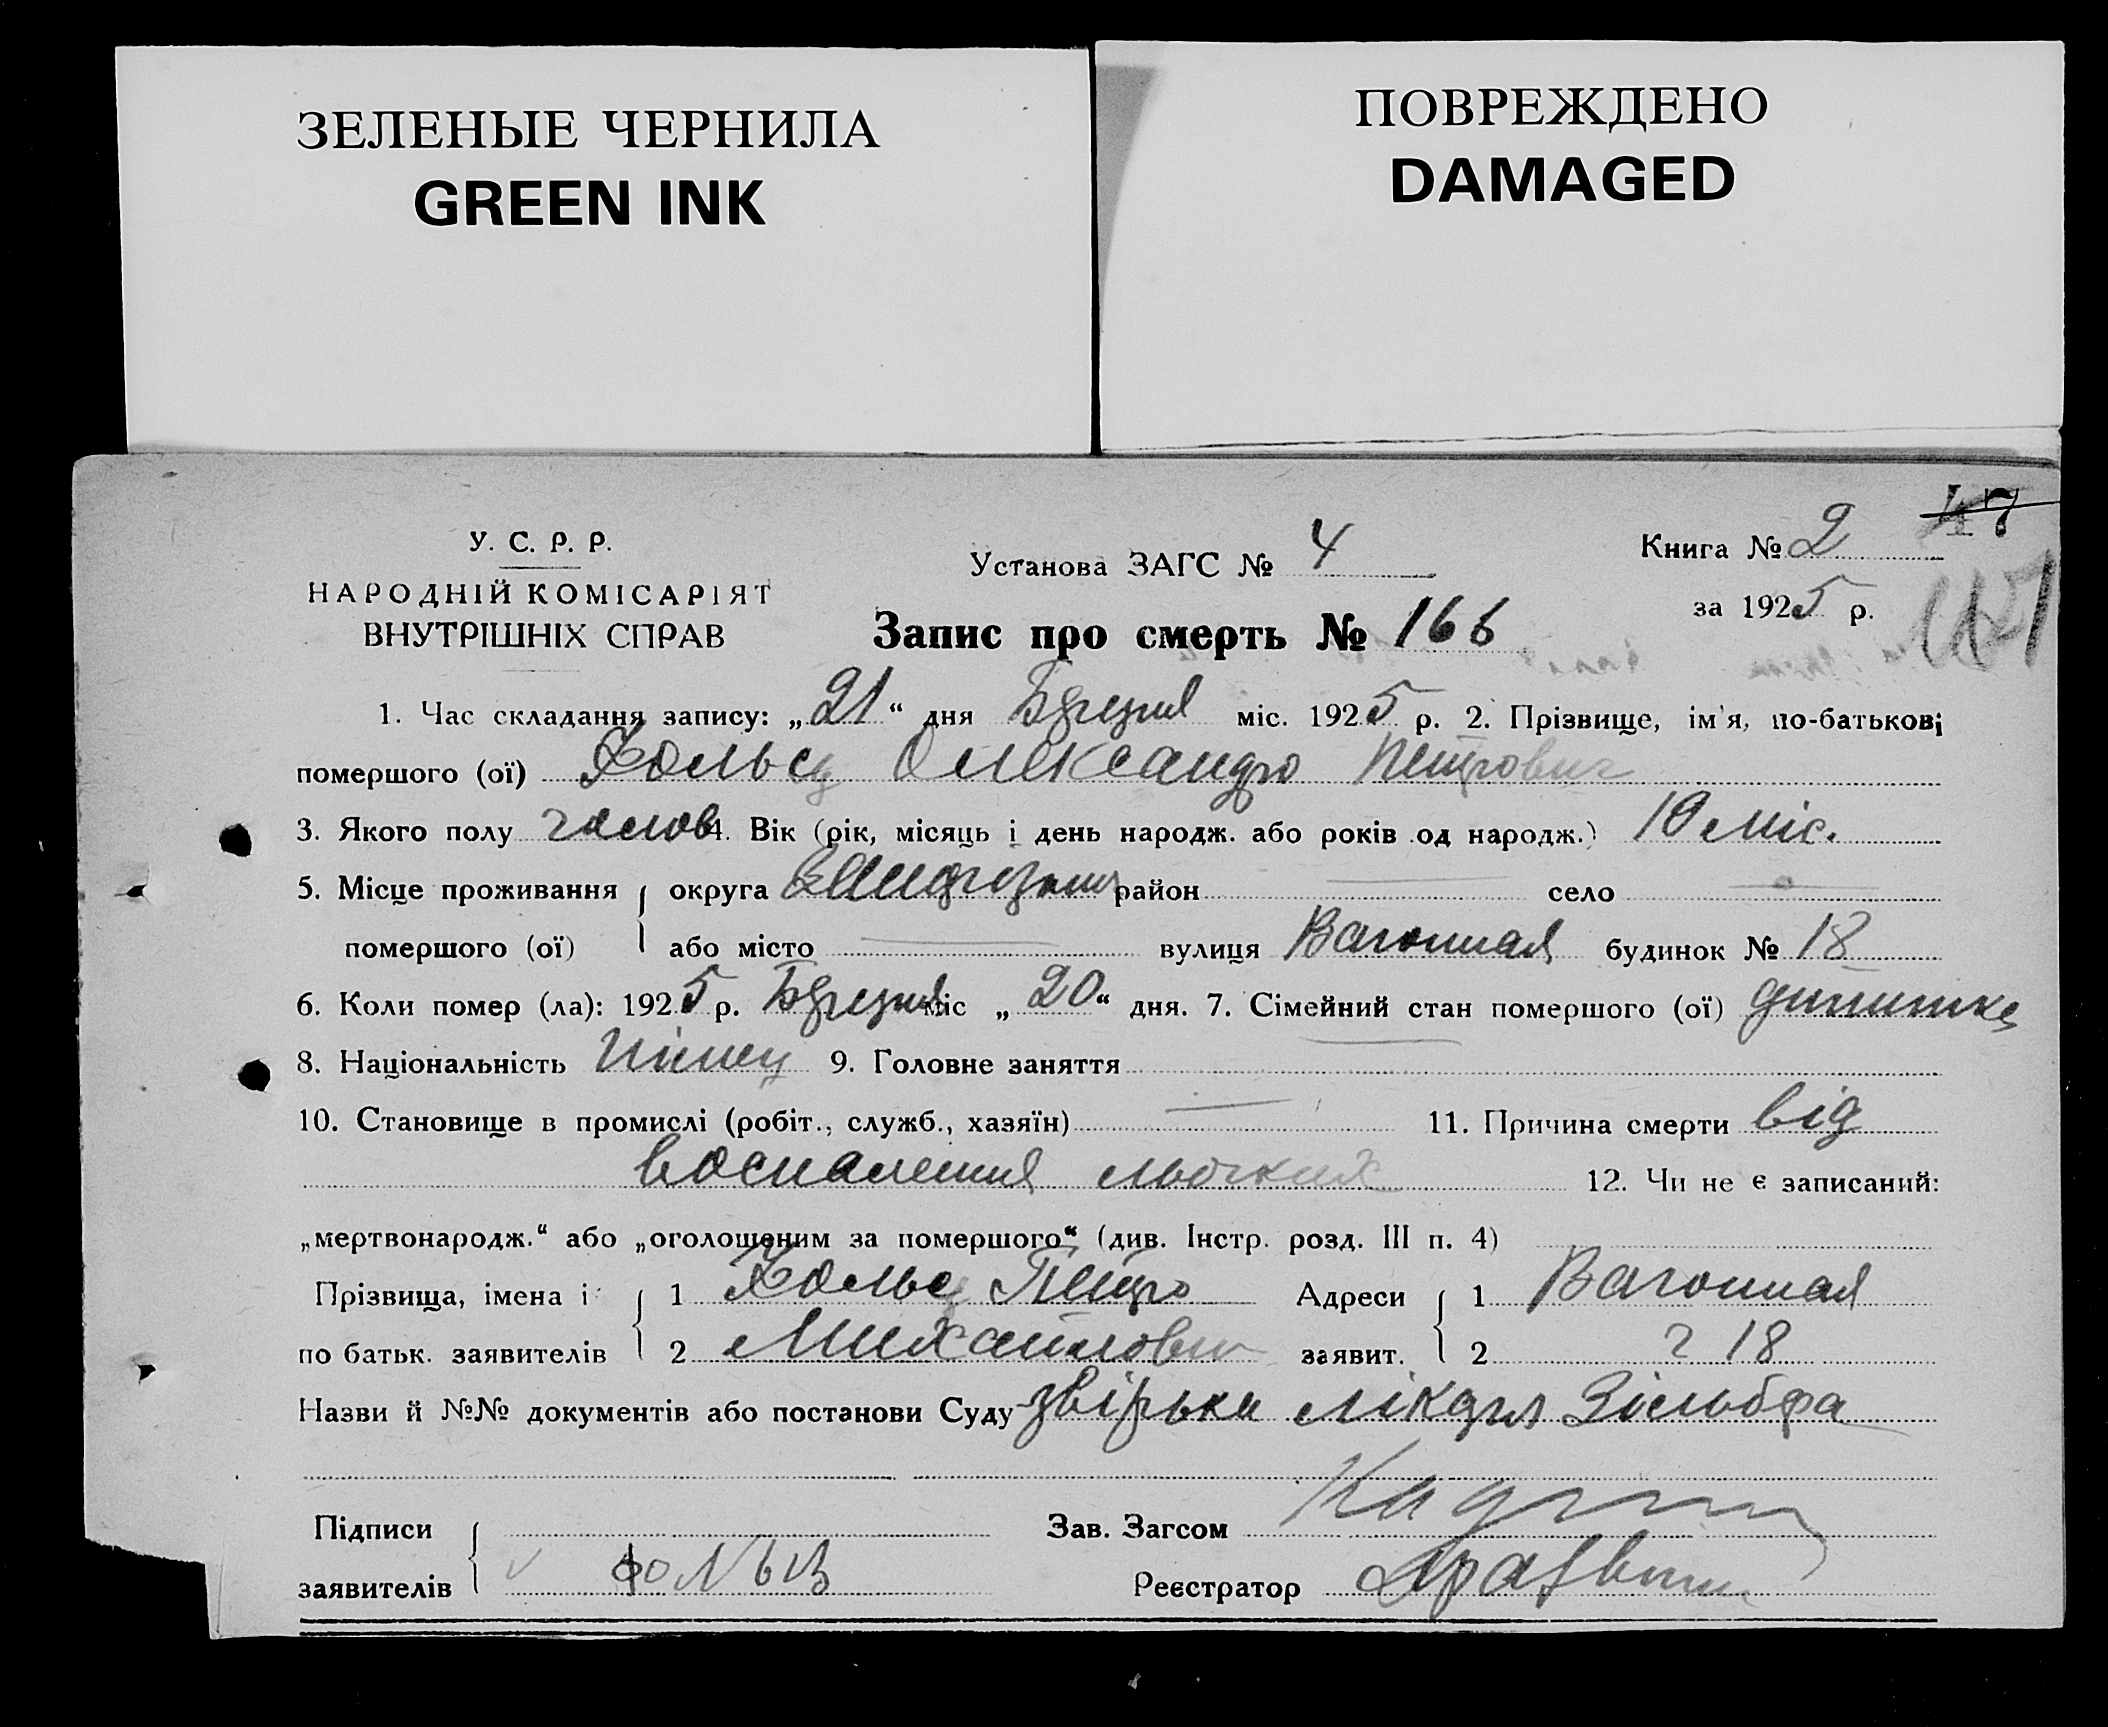 ЗЕЛЕНЫЕ ЧЕРНИЛА
GREEN INK
ПОВРЕЖДЕНО
DAMAGED
47
У. С. Р. Р.
НАРОДНІЙ КОМІСАРІЯТ
ВНУТРІШНІХ СПРАВ
Установа ЗАГС № 4
Книга № 2
за 1925 р.
Запис про смерть № 166
1. Час складання запису: „21“ дня Березня міс. 1925 р. 2. Прізвище, ім'я, по-батькові
помершого (ої) Хольц Олександр Петрович
3. Якого полу чолов 4. Вік (рік, місяць і день народж. або років од народж.) 10 міс.
5. Місце проживання округа район село
помершого (ої) або місто вулиця Вагонная будинок № 18
6. Коли помер (ла): 1925 р. Березня міс „20“ дня. 7. Сімейний стан помершого (ої) дитинка
8. Національність Німец 9. Головне заняття
10. Становище в промислі (робіт., служб., хазяїн) 11. Причина смерти від
воспаления льогких 12. Чи не є записаний:
„мертвонародж.“ або „оголошеним за помершого“ (див. Інстр. розд. III п. 4)
Прізвища, імена і 1 Хольц Петро Адреси 1 Вагонная
по батьк. заявителів 2 Михайлович заявит. 2 18
Назви й №№ документів або постанови Суду лікаря
Підписи Зав. Загсом
заявителів Реєстратор